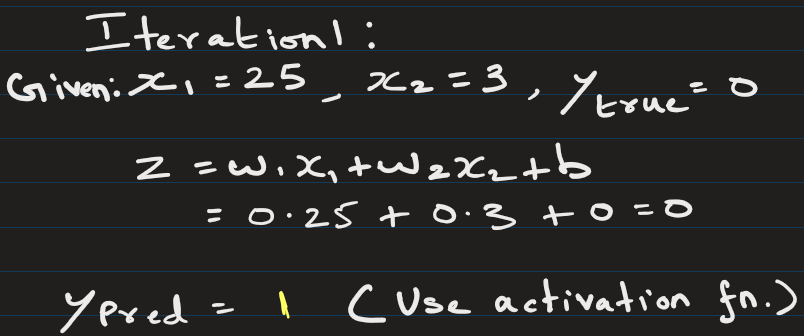 Iteration 1:
Given: x₁ = 25, x₂ = 3, y_true = 0
z = w₁x₁ + w₂x₂ + b
= 0·25 + 0·3 + 0 = 0
y_pred = 1 (Use activation fn.)